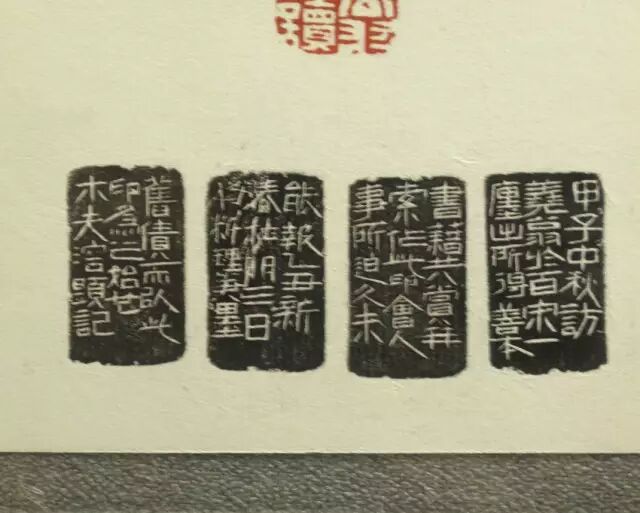 甲子中秋訪
蕘翁於百宋一
廛出所得善本
書籍共賞并
索作此印會人
事所迫久未
能報乙丑新
春燈明三日
將新理筆墨
舊債而以此
印為之始甘
木夫溶題記